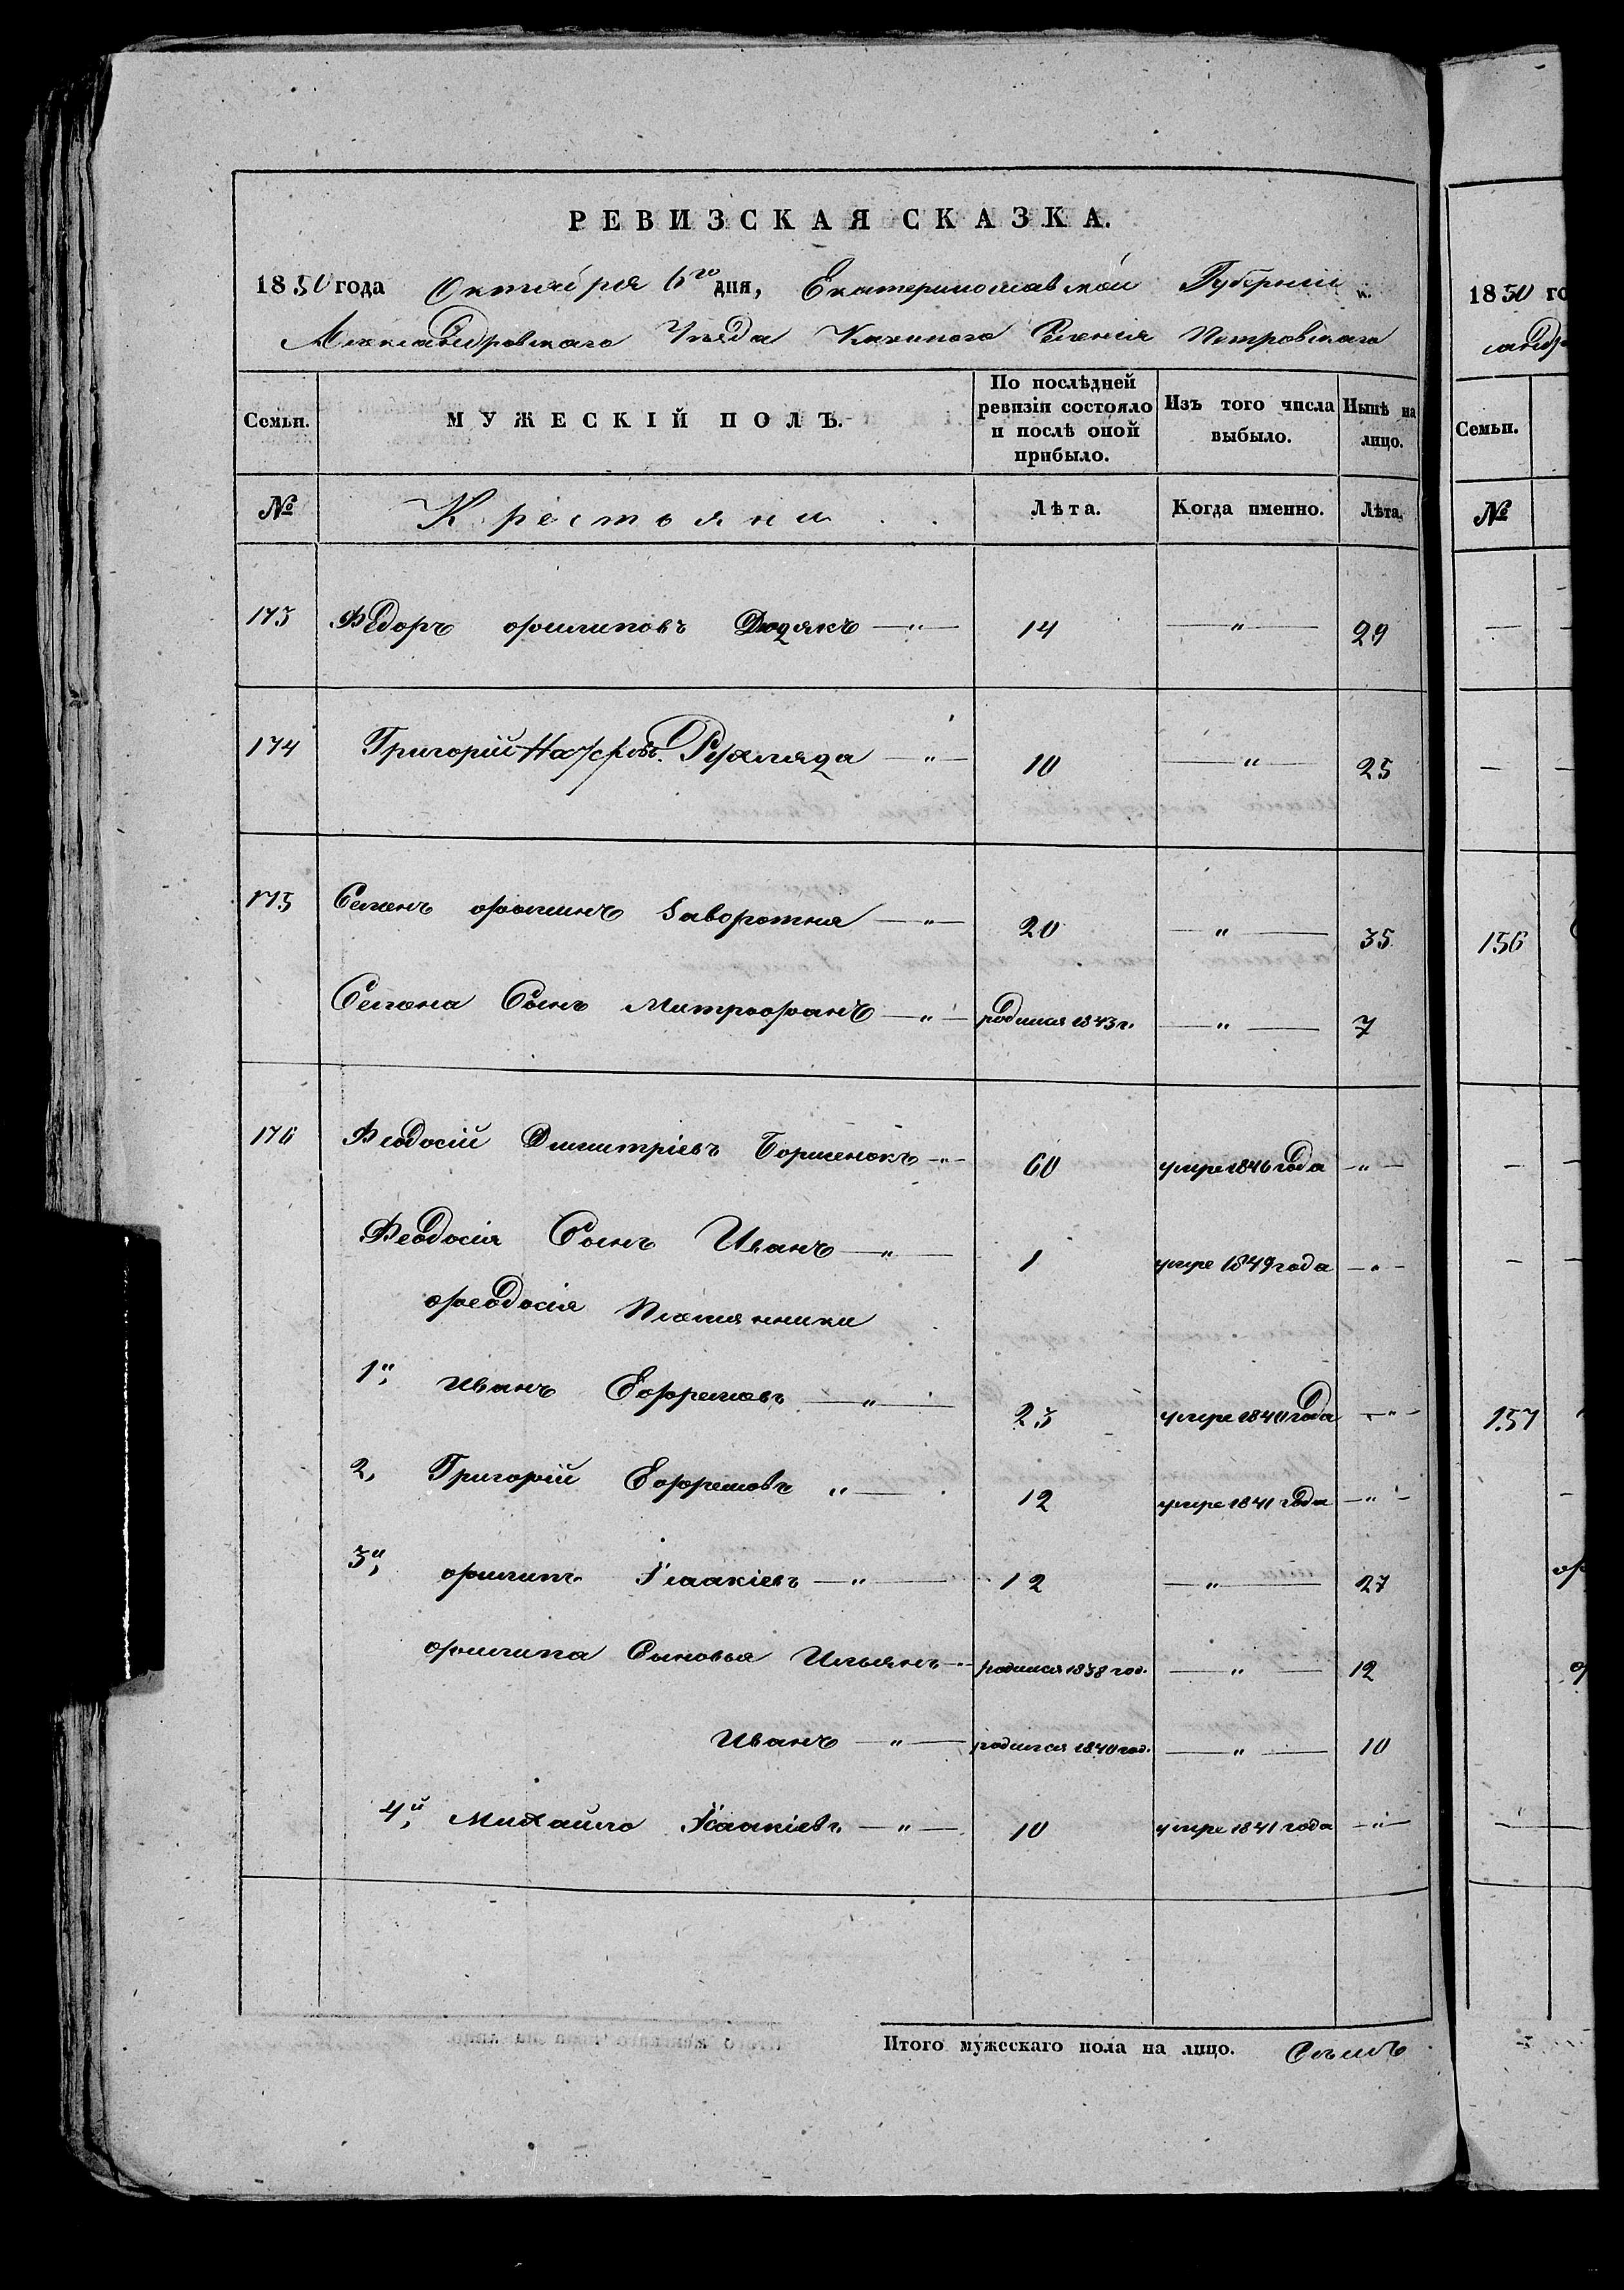 РЕВИЗСКАЯ СКАЗКА.
1850 года Октября 6го дня, Екатеринославской Губерніи
Александровскаго Уѣзда Казенного Селенія Петровскаго
Семьи.
МУЖЕСКІЙ ПОЛЪ.
По послѣдней ревизіи состояло и послѣ оной прибыло.
Изъ того числа выбыло.
Нынѣ на лицо.
№ Крестьяни Лѣта. Когда именно. Лѣта.
173 Федоръ Филиповъ — " — 14 — " — 29
174 Григорій — " — 10 — " — 25
175 Семенъ Фоминъ Заворотня — " — 20 — " — 35
Семена Сынъ Митрофанъ — " — родился 1843 г. — " — 7
176 Феодосій Дмитріевъ Борисенокъ — " — 60 умре 1846 года — " —
Феодосія Сынъ Иванъ — " — 1 умре 1849 года — " —
Феодосія Племянники
1й, Иванъ Ефремовъ — " — 23 умре 1840 года — " —
2, Григорій Ефремовъ " — 12 умре 1841 года — " —
3й, Филипъ Ісаакіевъ — " — 12 — " — 27
Филипа Сыновья Ильянъ — " — родился 1838 год. — " — 12
Иванъ — " — родился 1840 год. — " — 10
4й, Михайло Ісаакіевъ — " — 10 умре 1841 года — " —
Итого мужескаго пола на лицо. Семь
1850 го
Семьи.
№
156
157